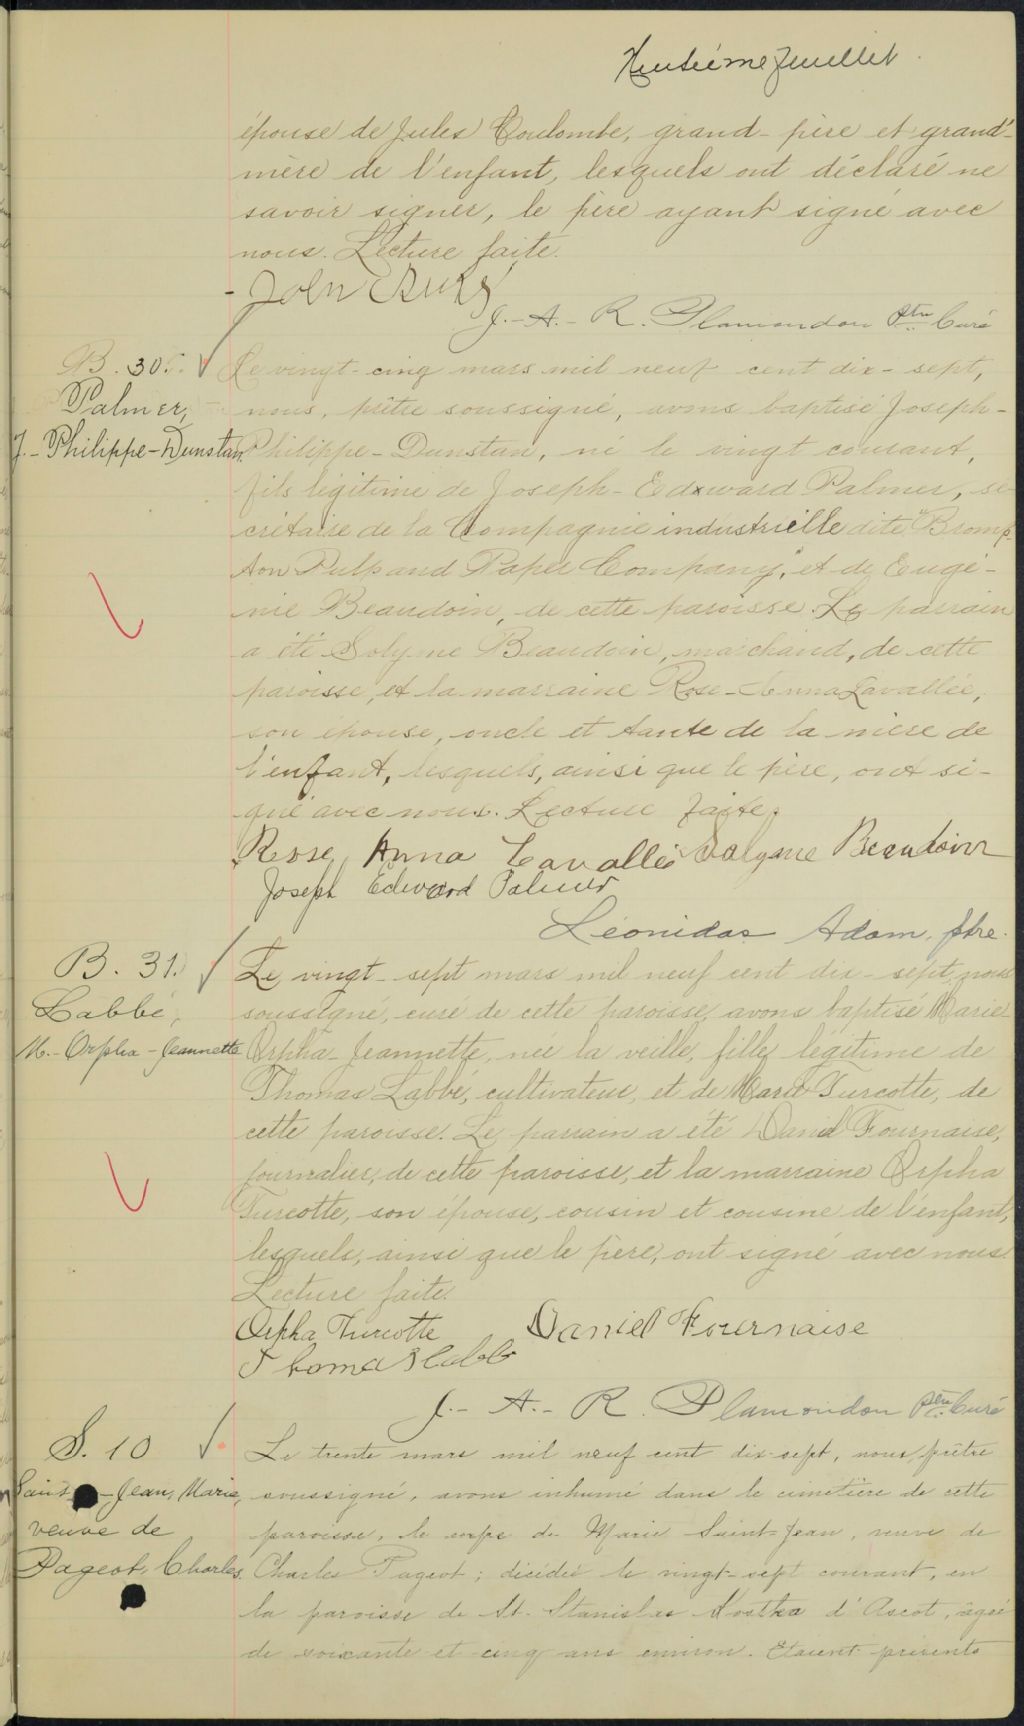 Huitième feuillet.
épouse de Jules Coulombe, grand-père et grand'-
mère de l'enfant, lesquels ont déclaré ne
savoir signer, le père ayant signé avec
nous. Lecture faite.
John
J.-A.-R. Plamondon Ptre Curé
B. 30.
Palmer,
J.-Philippe-Dunstan.
Le vingt-cinq mars mil neuf cent dix-sept,
nous, prêtre soussigné, avons baptisé Joseph-
Philippe-Dunstan, né le vingt courant,
fils légitime de Joseph-Edward Palmer, se-
crétaire de la Compagnie industrielle dite "Bromp-
ton Pulp and Paper Company," et de Eugé-
nie Beaudoin, de cette paroisse. Le parrain
a été Solyme Beaudoin, marchand, de cette
paroisse, et la marraine Rose-Anna Lavallée,
son épouse, oncle et tante de la mère de
l'enfant, lesquels, ainsi que le père, ont si-
gné avec nous. Lecture faite.
Rose Anna Lavallée Solyme Beaudoin
Joseph Edward Palmer
Léonidas Adam, ptre.
B. 31.
Labbé,
M.-Orpha-Jeannette
Le vingt-sept mars mil neuf cent dix-sept, nous
soussigné, curé de cette paroisse, avons baptisé Marie
Orpha-Jeannette, née la veille, fille légitime de
Thomas Labbé, cultivateur, et de Marie Turcotte, de
cette paroisse. Le parrain a été Daniel Fournaise,
journalier, de cette paroisse, et la marraine Orpha
Turcotte, son épouse, cousin et cousine de l'enfant,
lesquels, ainsi que le père, ont signé avec nous.
Lecture faite.
Orpha Turcotte Daniel Fournaise
Thomas Labbé
J.-A.-R. Plamondon Ptre Curé
S. 10
Saint-Jean, Marie,
veuve de
Pageot, Charles.
Le trente mars mil neuf cent dix-sept, nous prêtre
soussigné, avons inhumé dans le cimetière de cette
paroisse, le corps de Marie Saint-Jean, veuve de
Charles Pageot; décédée le vingt-sept courant, en
la paroisse de St. Stanislas Kostka d'Ascot, âgée
de soixante et cinq ans environ. Etaient présents